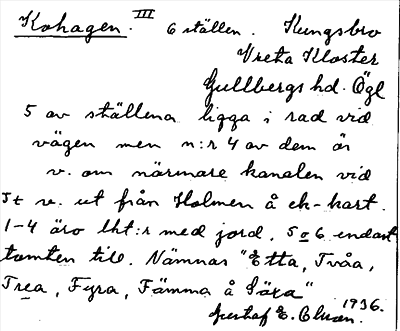 Kohagen. III 6 ställen. Kungsbro
Vreta Kloster
Gullbergs hd. Ögl
5 av ställena ligga i rad vid
vägen men n:r 4 av dem är
v. om närmare kanalen vid
st v. ut från Holmen å ek-kart.
1-4 äro lht:r med jord, 5 o 6 endast
tomten till. Nämnas "Etta, Tvåa,
Trea, Fyra, Fämma å Säxa"
Gustaf E. 1936.